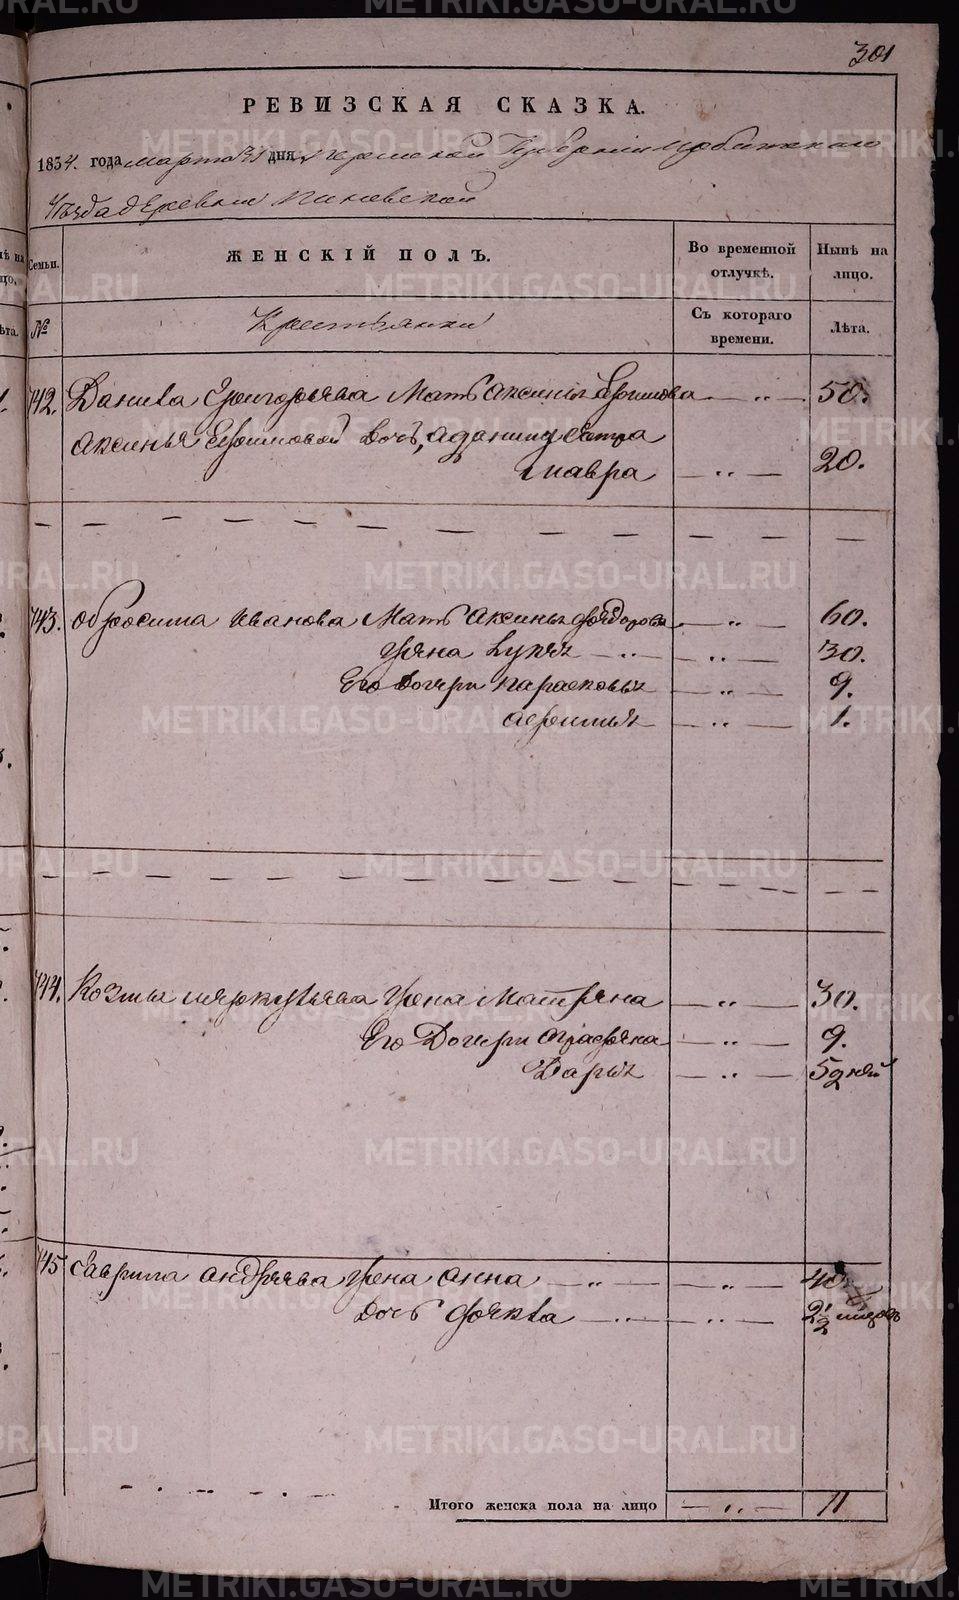 301
РЕВИЗСКАЯ СКАЗКА.
1834. года марта дня Пермской Губернии Ирбитскаго
Уезда деревни
Семьи. ЖЕНСКІЙ ПОЛЪ. Во временной отлучкѣ. Нынѣ на лицо.
№ Крестьянки Съ котораго времени. Лѣта.
742. Данила Григорьева Мать Аксинья Ефимова — „ — 50.
Аксиньи Ефимовой дочь, а Данилу Сестра
Мавра — „ — 20.
743. Обросима Иванова Мать Аксинья Федорова — „ — 60.
Жена Лукея — „ — 30.
Его Дочери Парасковья — „ — 9.
Афимья — „ — 1.
744. Козмы Меркурьева Жена Матрена — „ — 30.
Его Дочери Аграфена — „ — 9.
Дарья — „ — 5 дней
745 Гаврила Андреева Жена Анна — „ — 40
Дочь Фекла — „ — 2 1/2 месяц
Итого женска пола на лицо — „ — 11
METRIKI.GASO-URAL.RU